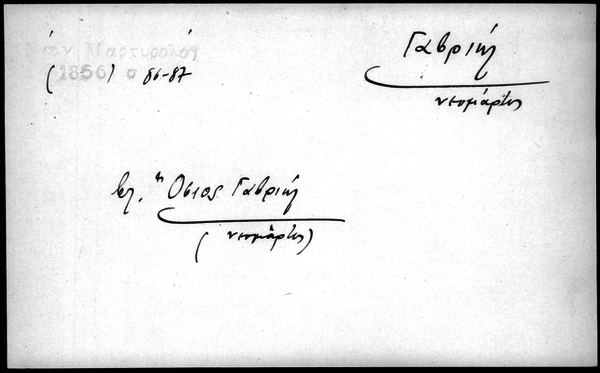 Νέον Μαρτυρολόγ
(1856) σ 86-87
Γαβριήλ
νεομάρτυς
βλ. " Οσιος Γαβριήλ
(νεομάρτυς)